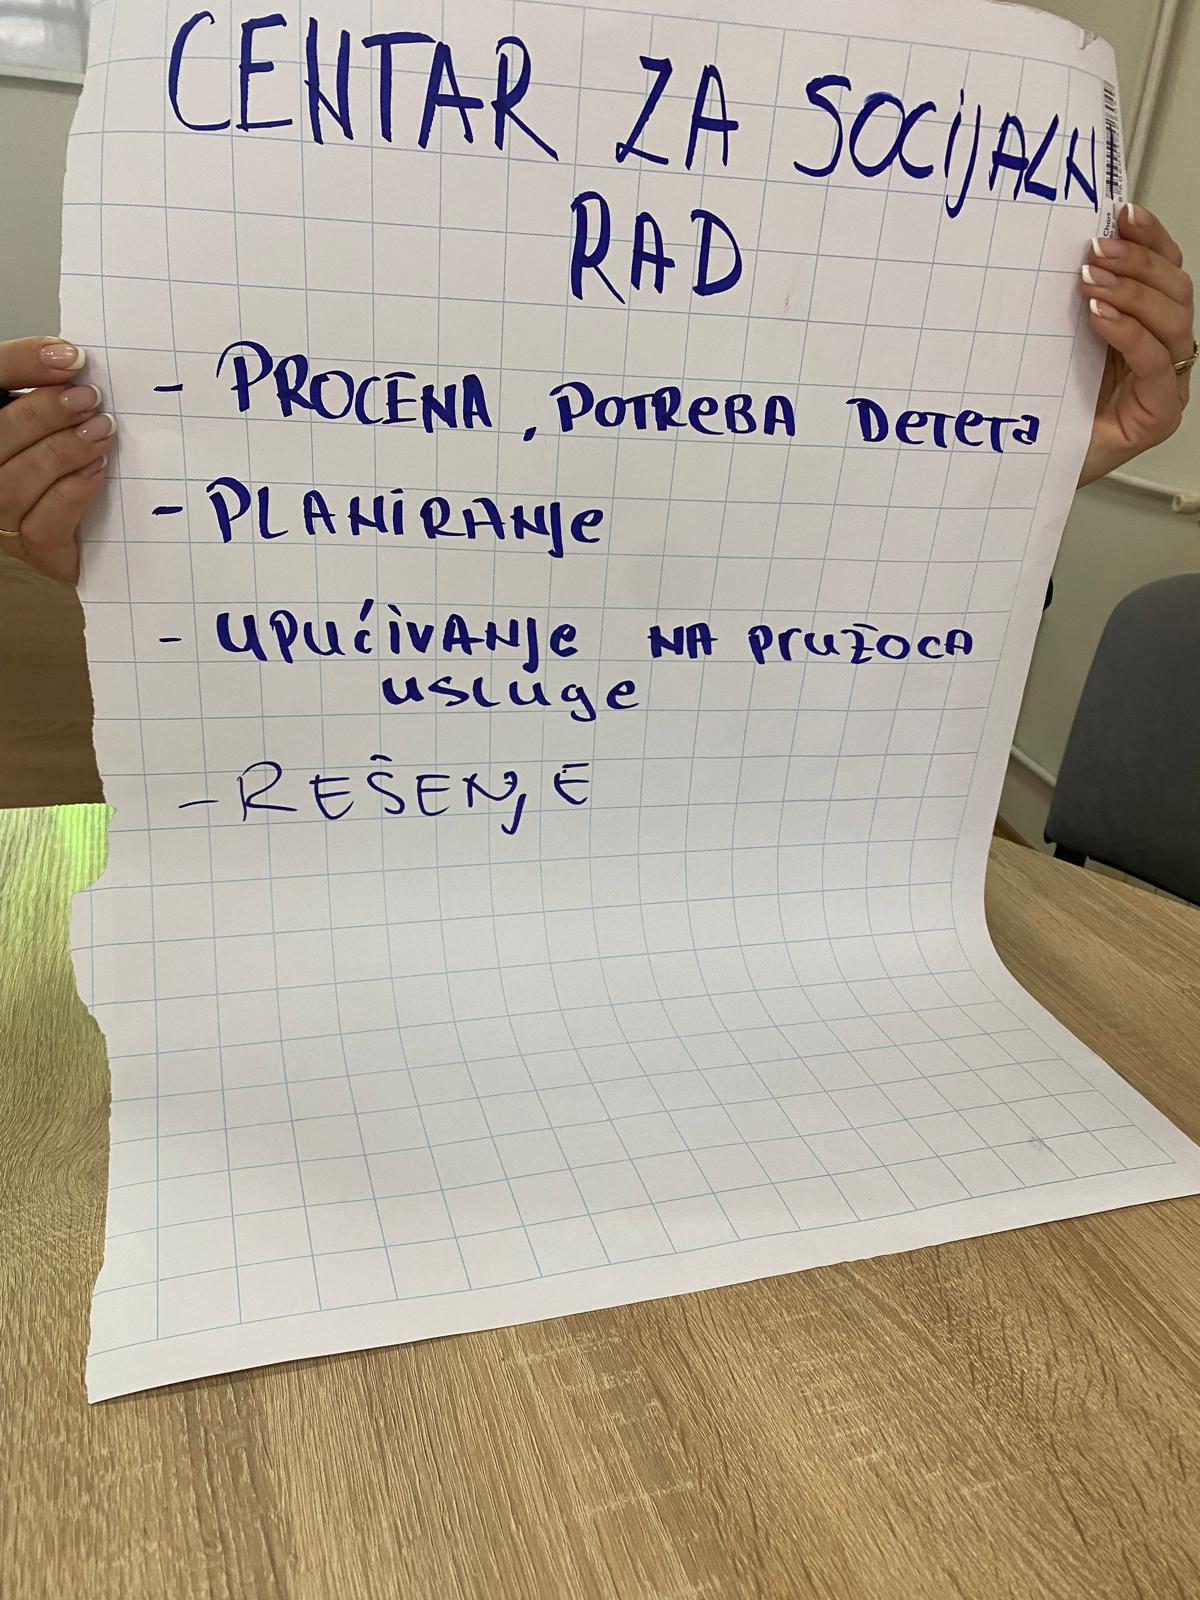 CENTAR ZA SOCIJALN
RAD
- PROCENA, POTREBA DETETA
- PLANIRANJE
- UPUĆIVANJE NA PRUŽOCA
USLUGE
- REŠENJE
Chart